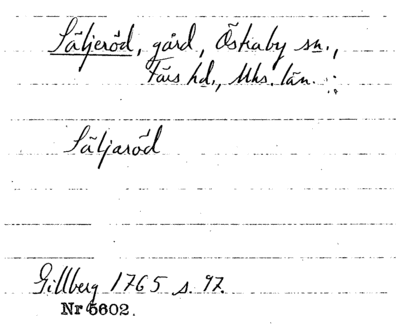 Säljeröd, gård, Östraby sn.,
Färs hd., Mhs. län.
Säljaröd
Gillberg 1765 s. 97.
Nr 5602.